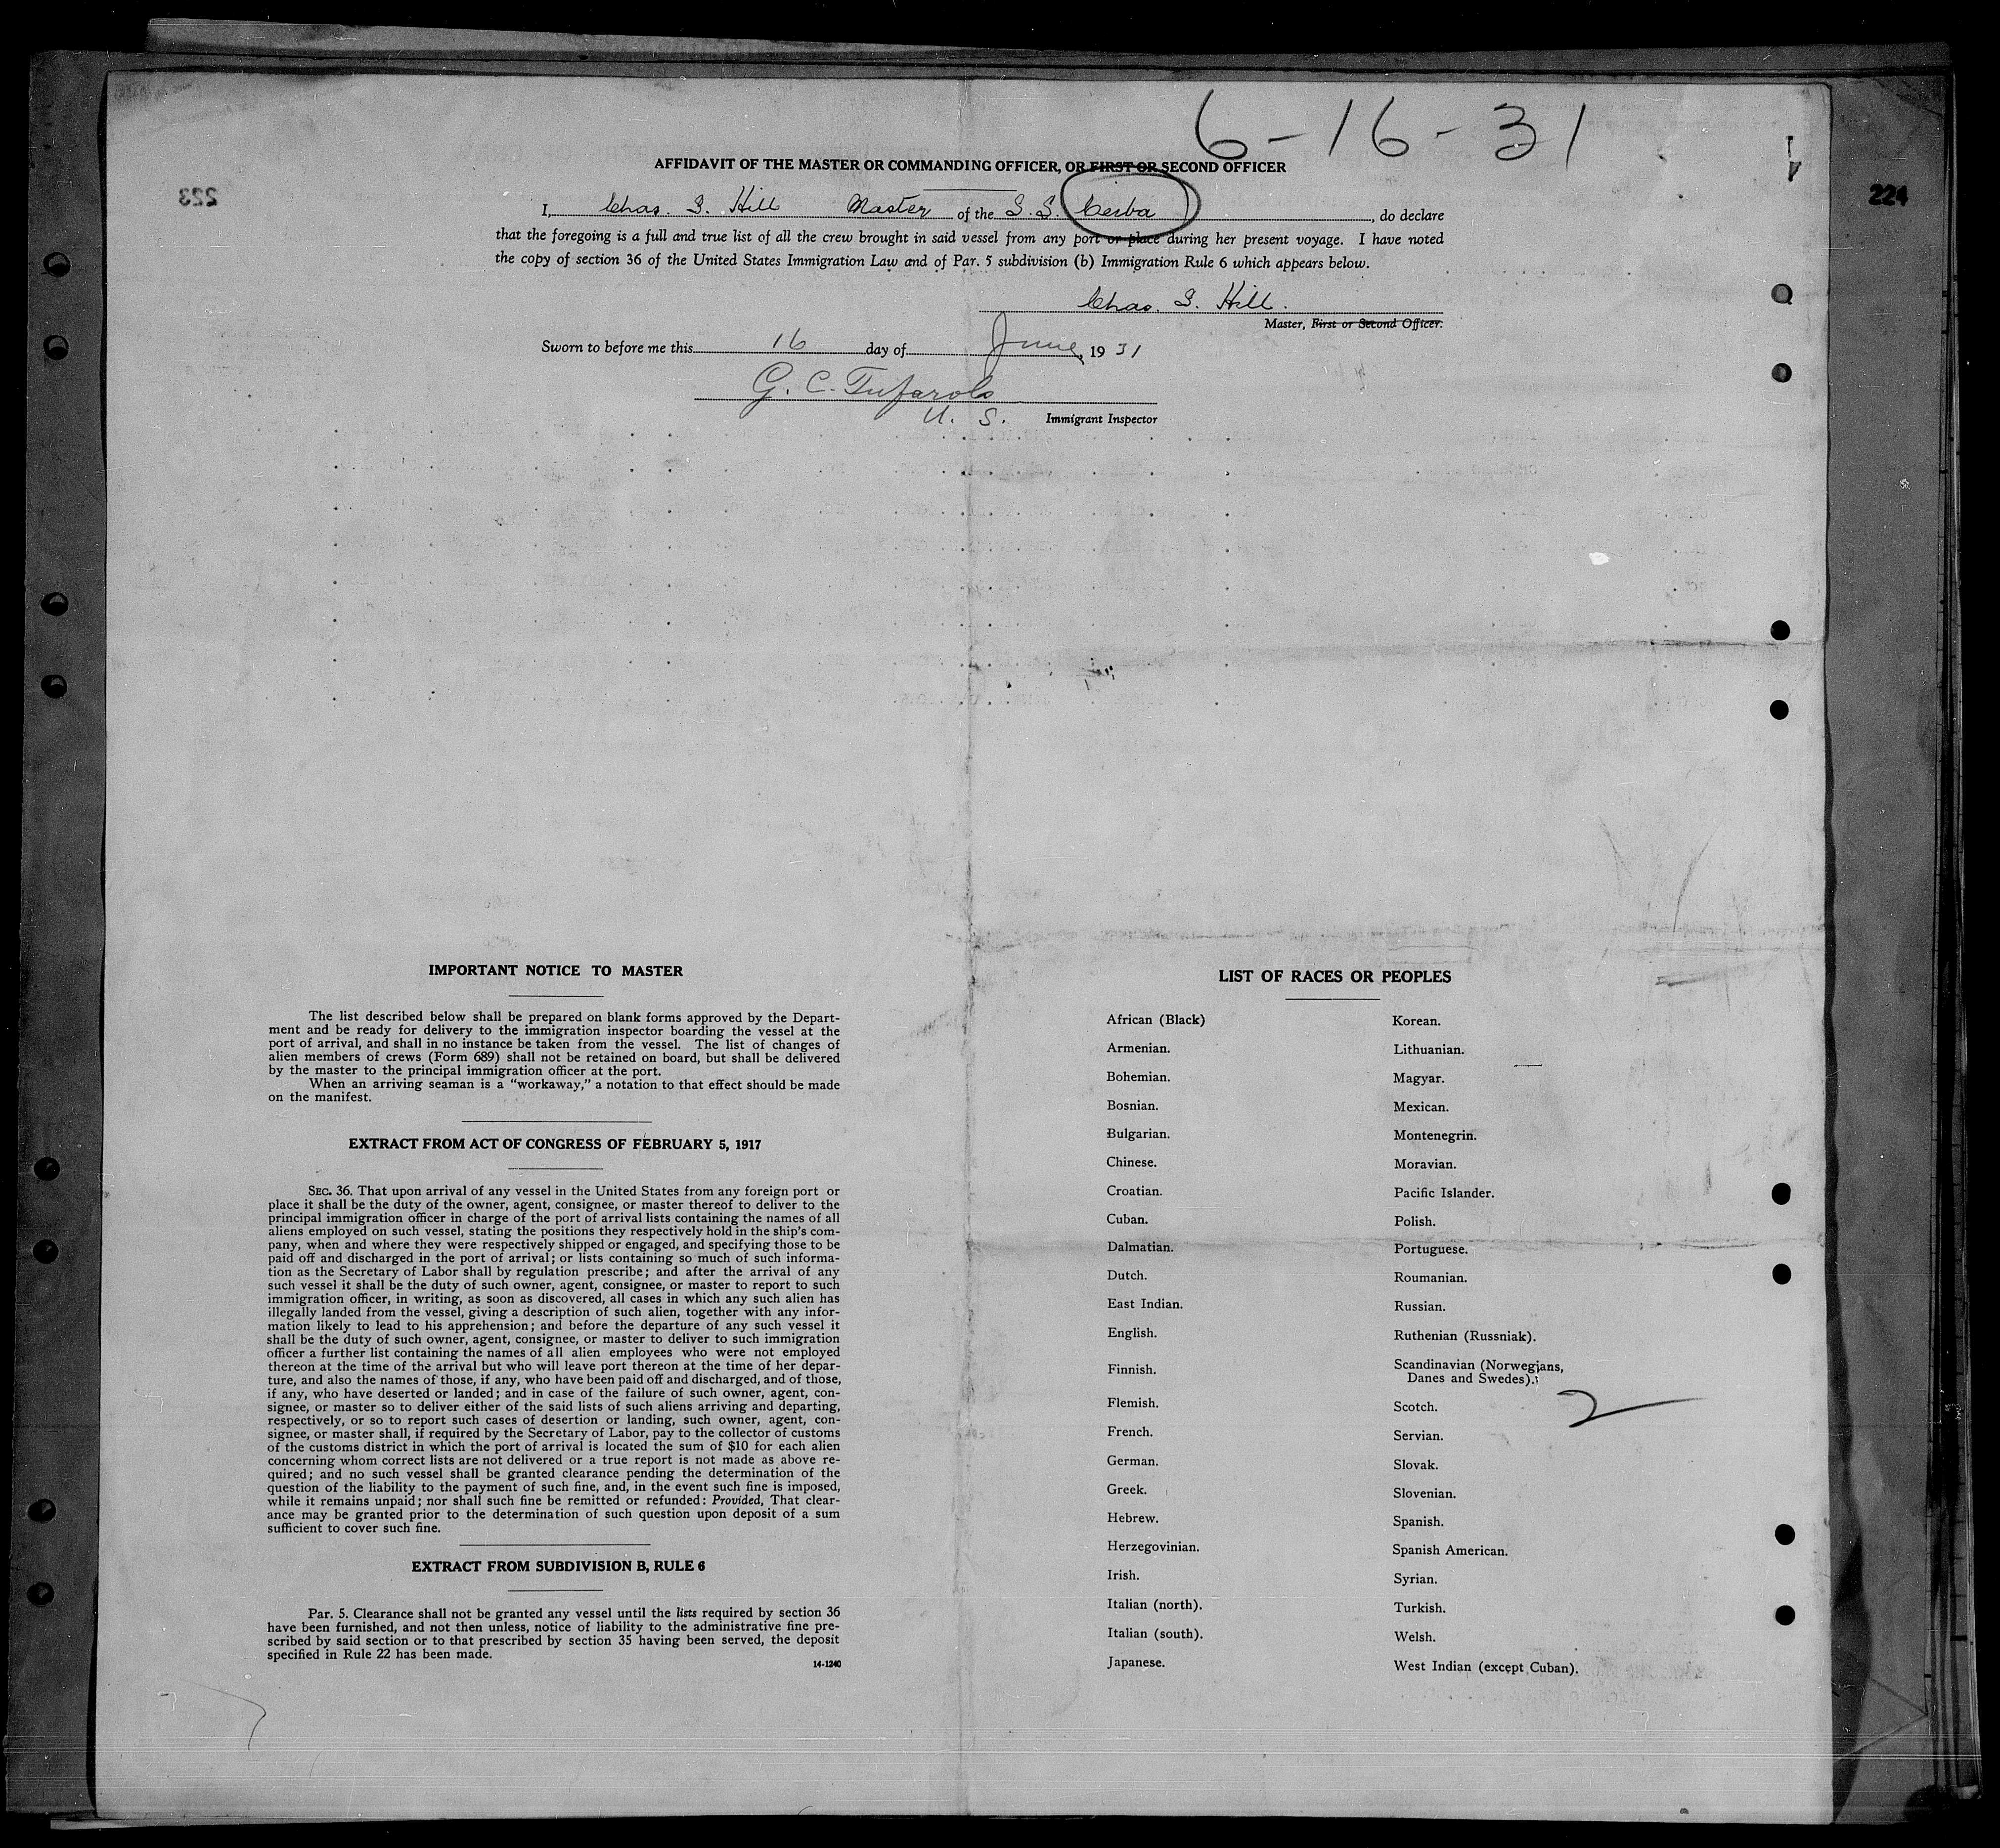 6-16-31
AFFIDAVIT OF THE MASTER OR COMMANDING OFFICER, OR FIRST OR SECOND OFFICER
223
224
I, Chas. S. Hill Master of the S.S. Ceiba, do declare
that the foregoing is a full and true list of all the crew brought in said vessel from any port or place during her present voyage. I have noted
the copy of section 36 of the United States Immigration Law and of Par. 5 subdivision (b) Immigration Rule 6 which appears below.
Chas. S. Hill.
Master, First or Second Officer.
Sworn to before me this 16 day of June, 1931
G. C. Tufarolo
U. S. Immigrant Inspector
IMPORTANT NOTICE TO MASTER
The list described below shall be prepared on blank forms approved by the Depart-
ment and be ready for delivery to the immigration inspector boarding the vessel at the
port of arrival, and shall in no instance be taken from the vessel. The list of changes of
alien members of crews (Form 689) shall not be retained on board, but shall be delivered
by the master to the principal immigration officer at the port.
When an arriving seaman is a "workaway," a notation to that effect should be made
on the manifest.
EXTRACT FROM ACT OF CONGRESS OF FEBRUARY 5, 1917
SEC. 36. That upon arrival of any vessel in the United States from any foreign port or
place it shall be the duty of the owner, agent, consignee, or master thereof to deliver to the
principal immigration officer in charge of the port of arrival lists containing the names of all
aliens employed on such vessel, stating the positions they respectively hold in the ship's com-
pany, when and where they were respectively shipped or engaged, and specifying those to be
paid off and discharged in the port of arrival; or lists containing so much of such informa-
tion as the Secretary of Labor shall by regulation prescribe; and after the arrival of any
such vessel it shall be the duty of such owner, agent, consignee, or master to report to such
immigration officer, in writing, as soon as discovered, all cases in which any such alien has
illegally landed from the vessel, giving a description of such alien, together with any infor-
mation likely to lead to his apprehension; and before the departure of any such vessel it
shall be the duty of such owner, agent, consignee, or master to deliver to such immigration
officer a further list containing the names of all alien employees who were not employed
thereon at the time of the arrival but who will leave port thereon at the time of her depar-
ture, and also the names of those, if any, who have been paid off and discharged, and of those,
if any, who have deserted or landed; and in case of the failure of such owner, agent, con-
signee, or master so to deliver either of the said lists of such aliens arriving and departing,
respectively, or so to report such cases of desertion or landing, such owner, agent, con-
signee, or master shall, if required by the Secretary of Labor, pay to the collector of customs
of the customs district in which the port of arrival is located the sum of $10 for each alien
concerning whom correct lists are not delivered or a true report is not made as above re-
quired; and no such vessel shall be granted clearance pending the determination of the
question of the liability to the payment of such fine, and, in the event such fine is imposed,
while it remains unpaid; nor shall such fine be remitted or refunded: Provided, That clear-
ance may be granted prior to the determination of such question upon deposit of a sum
sufficient to cover such fine.
EXTRACT FROM SUBDIVISION B, RULE 6
Par. 5. Clearance shall not be granted any vessel until the lists required by section 36
have been furnished, and not then unless, notice of liability to the administrative fine pre-
scribed by said section or to that prescribed by section 35 having been served, the deposit
specified in Rule 22 has been made.
14-1240
LIST OF RACES OR PEOPLES
African (Black)
Armenian.
Bohemian.
Bosnian.
Bulgarian.
Chinese.
Croatian.
Cuban.
Dalmatian.
Dutch.
East Indian.
English.
Finnish.
Flemish.
French.
German.
Greek.
Hebrew.
Herzegovinian.
Irish.
Italian (north).
Italian (south).
Japanese.
Korean.
Lithuanian.
Magyar.
Mexican.
Montenegrin.
Moravian.
Pacific Islander.
Polish.
Portuguese.
Roumanian.
Russian.
Ruthenian (Russniak).
Scandinavian (Norwegians,
Danes and Swedes).
Scotch.
Servian.
Slovak.
Slovenian.
Spanish.
Spanish American.
Syrian.
Turkish.
Welsh.
West Indian (except Cuban).
2